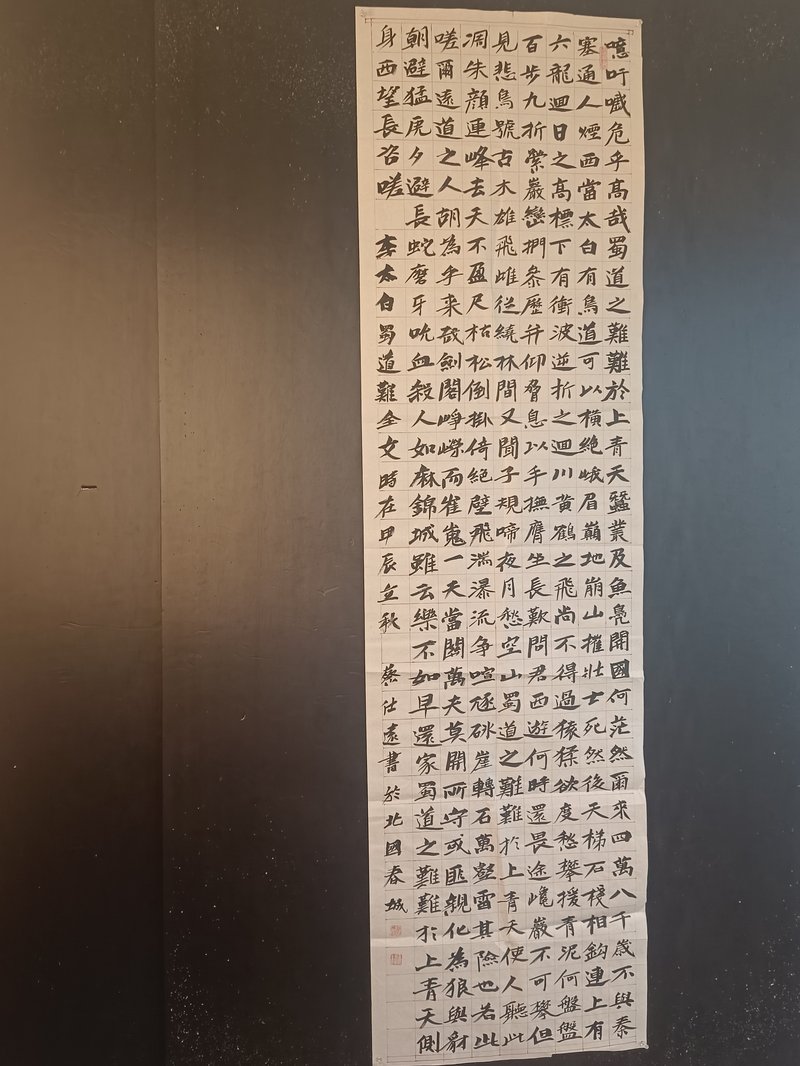 噫吁嚱危乎高哉蜀道之難難於上青天蠶叢及魚鳧開國何茫然爾來四萬八千歲不與秦
塞通人煙西當太白有鳥道可以橫絕峨眉巔地崩山摧壯士死然後天梯石棧相鈎連上有
六龍迴日之高標下有衝波逆折之迴川黃鶴之飛尚不得過猿猱欲度愁攀援青泥何盤盤
百步九折縈巖巒捫參歷井仰脅息以手撫膺坐長歎問君西遊何時還畏途巉巖不可攀但
見悲鳥號古木雄飛雌從繞林間又聞子規啼夜月愁空山蜀道之難難於上青天使人聽此
凋朱顏連峰去天不盈尺枯松倒掛倚絕壁飛湍瀑流爭喧豗砯崖轉石萬壑雷其險也若此
嗟爾遠道之人胡為乎来哉劍閣崢嶸而崔嵬一天當關萬夫莫開所守或匪親化為狼與豺
朝避猛虎夕避長蛇磨牙吮血殺人如麻錦城雖云樂不如早還家蜀道之難難於上青天側
身西望長咨嗟 李太白蜀道難全文時在甲辰立秋 蔡仕遠書於北國春城